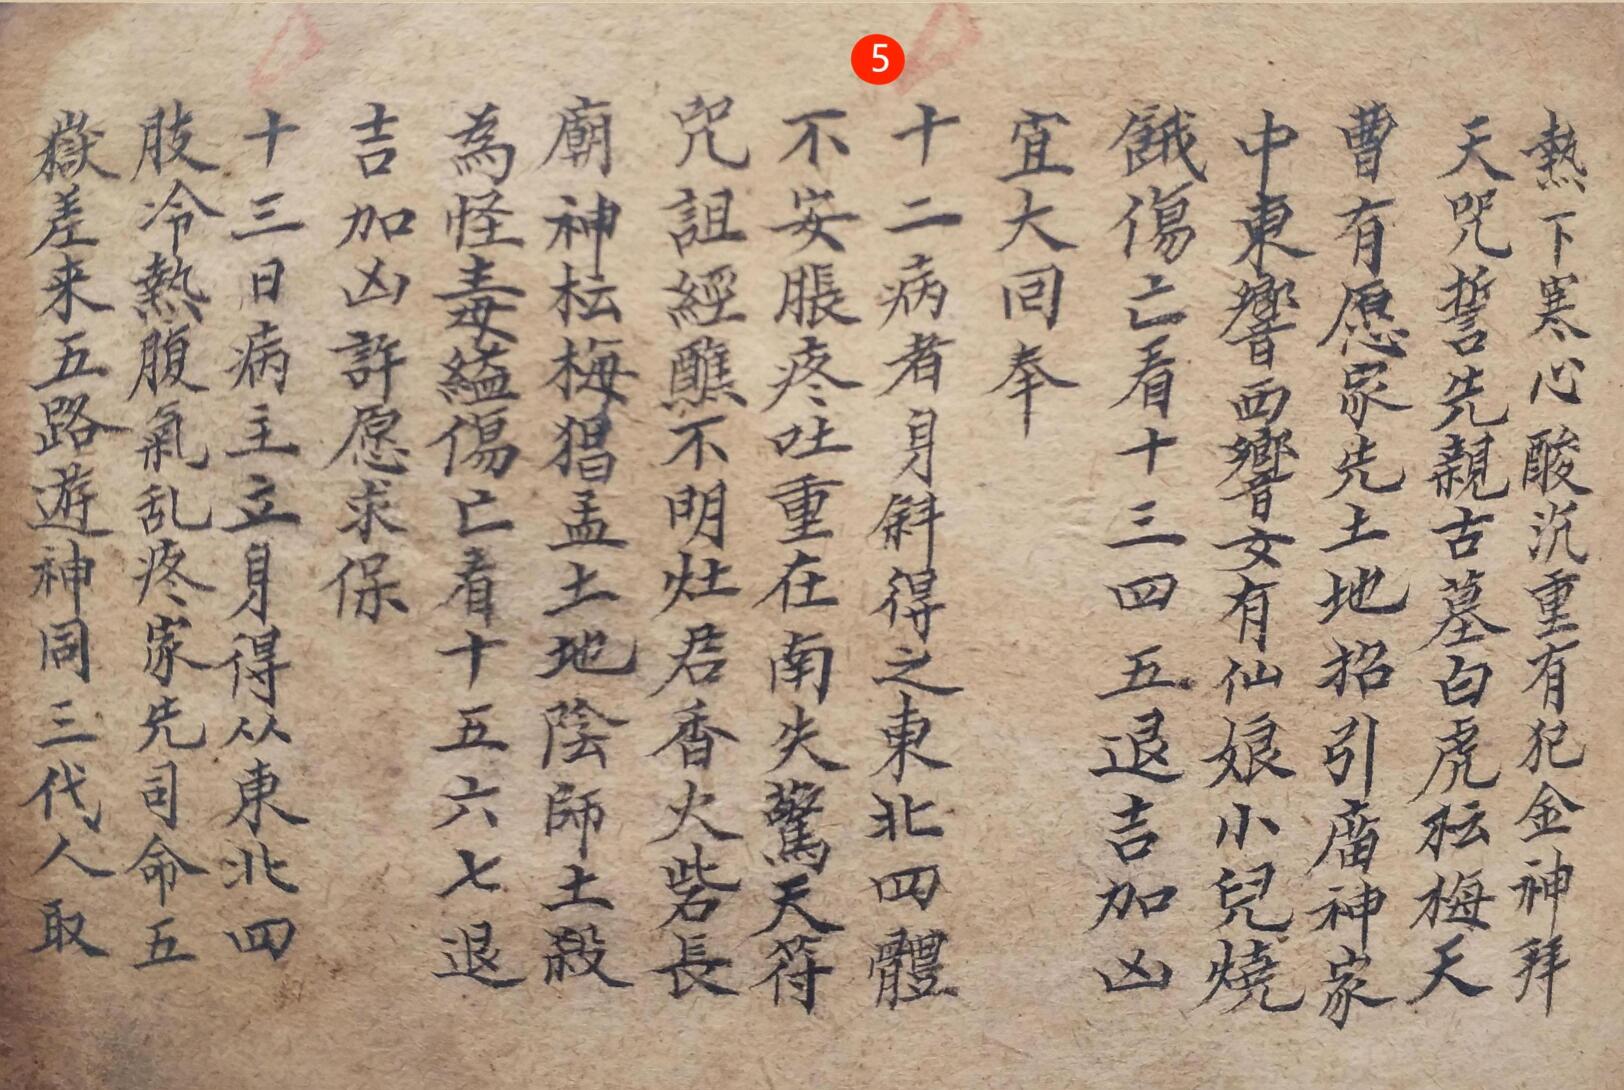 5
熱下寒心酸沉重有犯金神拜
天咒誓先親古墓白虎坛梅天
曹有愿家先土地招引庙神家
中東響西響女有仙娘小兒燒
餓傷亡看十三四五退吉加凶
宜大同奉
十二病者身斜得之東北四體
不安脹疼吐重在南失驚天符
咒詛經醮不明灶君香火砦長
廟神坛梅猖孟土地陰師土殺
為怪毒縊傷亡看十五六七退
吉加凶許愿求保
十三日病主立身得从東北四
肢冷熱腹氣乱疼家先司命五
嶽差来五路遊神同三代人取